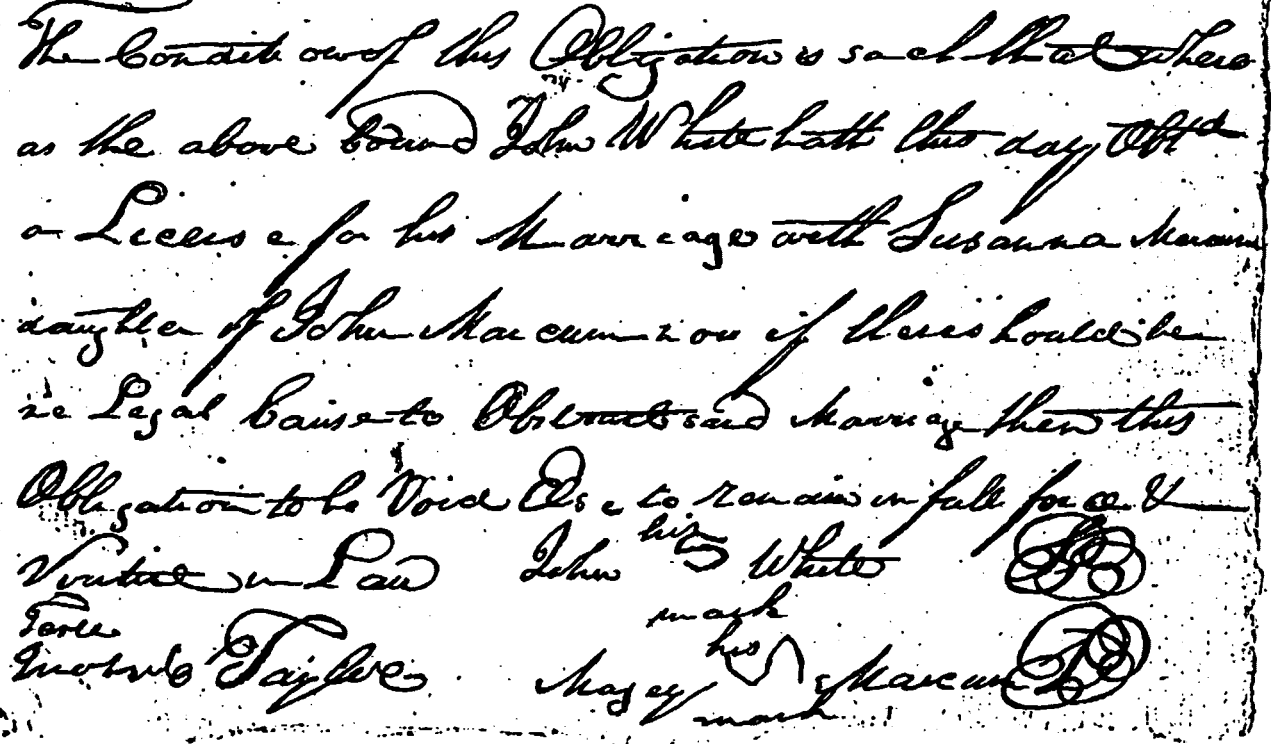 The Condition of this Obligation is such that Where
as the above bound John White hath this day Obtd
a License for his Marriage with Susanna Marcum
daughter of John Marcum now if there should be
no Legal Cause to Obstruct said Marriage then this
Obligation to be Void Else to remain in full force &
Virtue in Law John his White
mark
Teste
Taylor his Marcum
mark